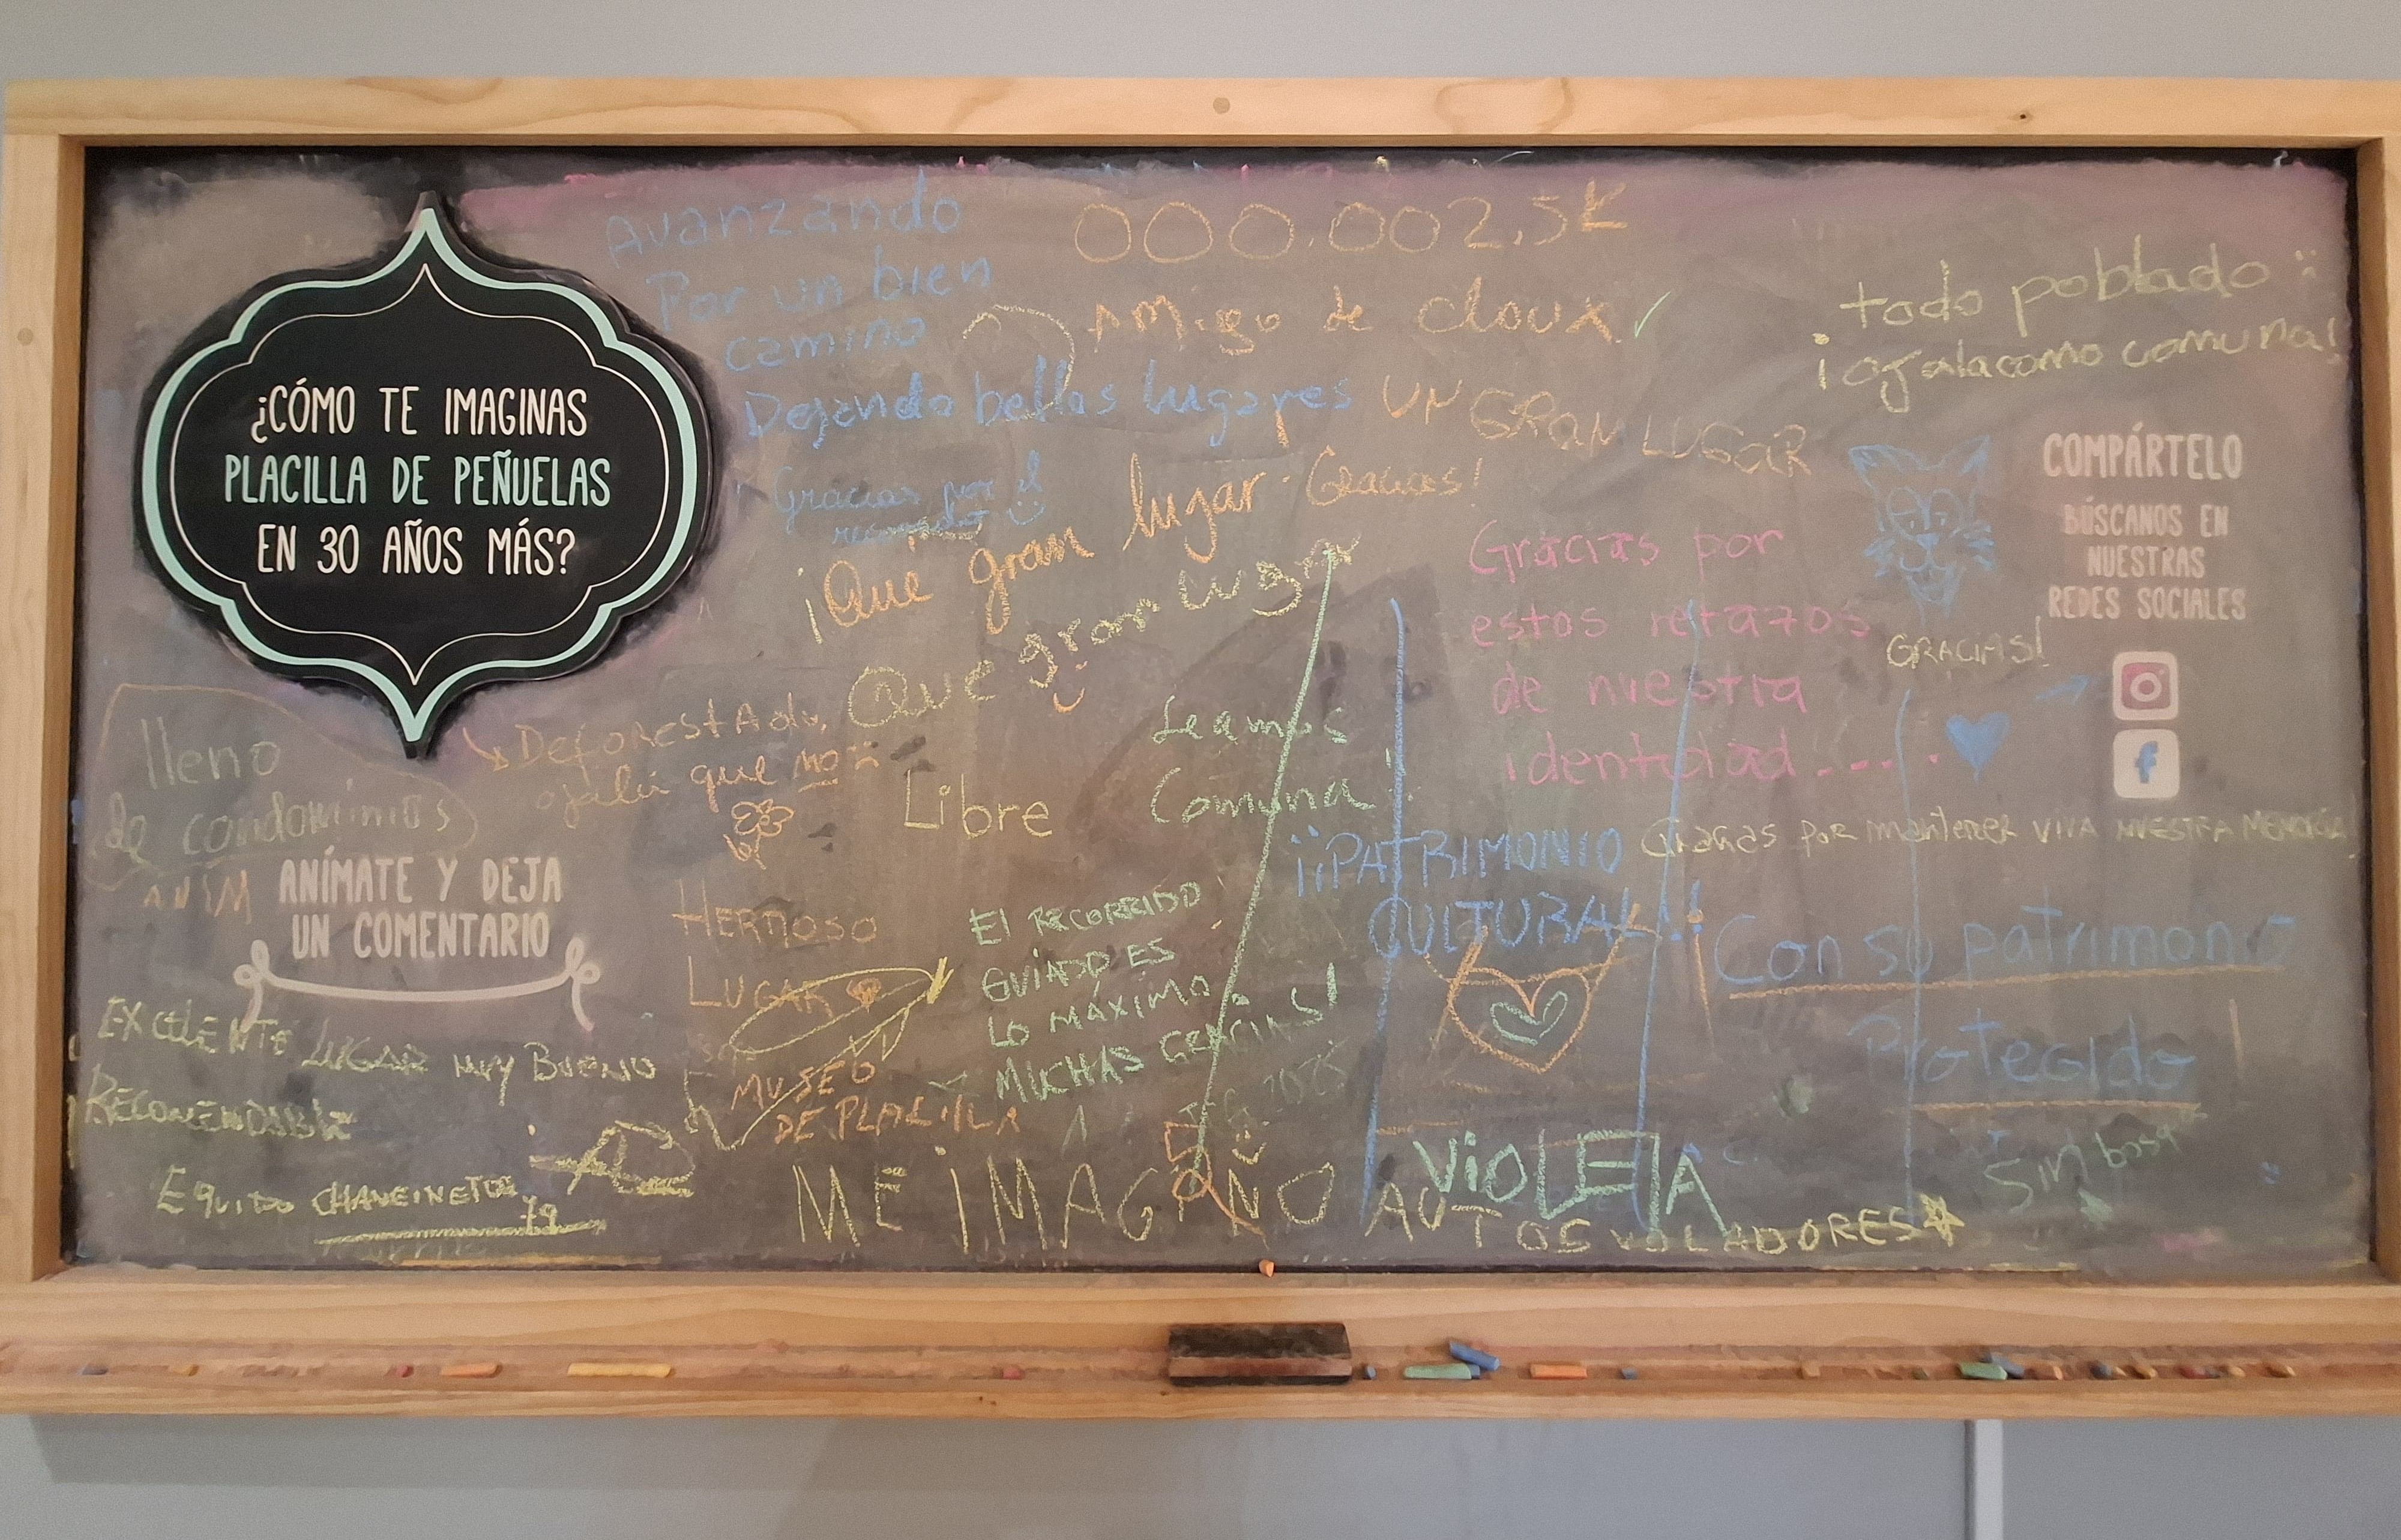 ¿CÓMO TE IMAGINAS
PLACILLA DE PEÑUELAS
EN 30 AÑOS MÁS?
Avanzando
Por un bien
camino
Dejando bellos lugares
000.002,5K
Amigo de cloux
UN GRAN LUGAR
todo poblado
¡ojala como comuna!
Gracias por el
recorrido
¡Que gran lugar Gracias!
Que gran lugar
Gracias por
estos retazos
de nuestra
identidad....
COMPÁRTELO
BÚSCANOS EN
NUESTRAS
REDES SOCIALES
GRACIAS!
lleno
de condominios
DeforestAdo,
ojalá que no
Libre
Seamos
Comuna!
ANIM
ANÍMATE Y DEJA
UN COMENTARIO
HERMOSO
LUGAR
El RECORRIDO
GUIADO ES
LO MÁXIMO.
MUCHAS GRACIAS!
¡¡PATRIMONIO
CULTURAL!!
Gracias por mantener VIVA NUESTRA MEMORIA
Con su patrimonio
Protegido
EXCELENTE LUGAR MUY BUENO
RECOMENDABLE
MUSEO
DE PLACILLA
VIOLETA
ME IMAGINO AUTOS VOLADORES
Sin bosq